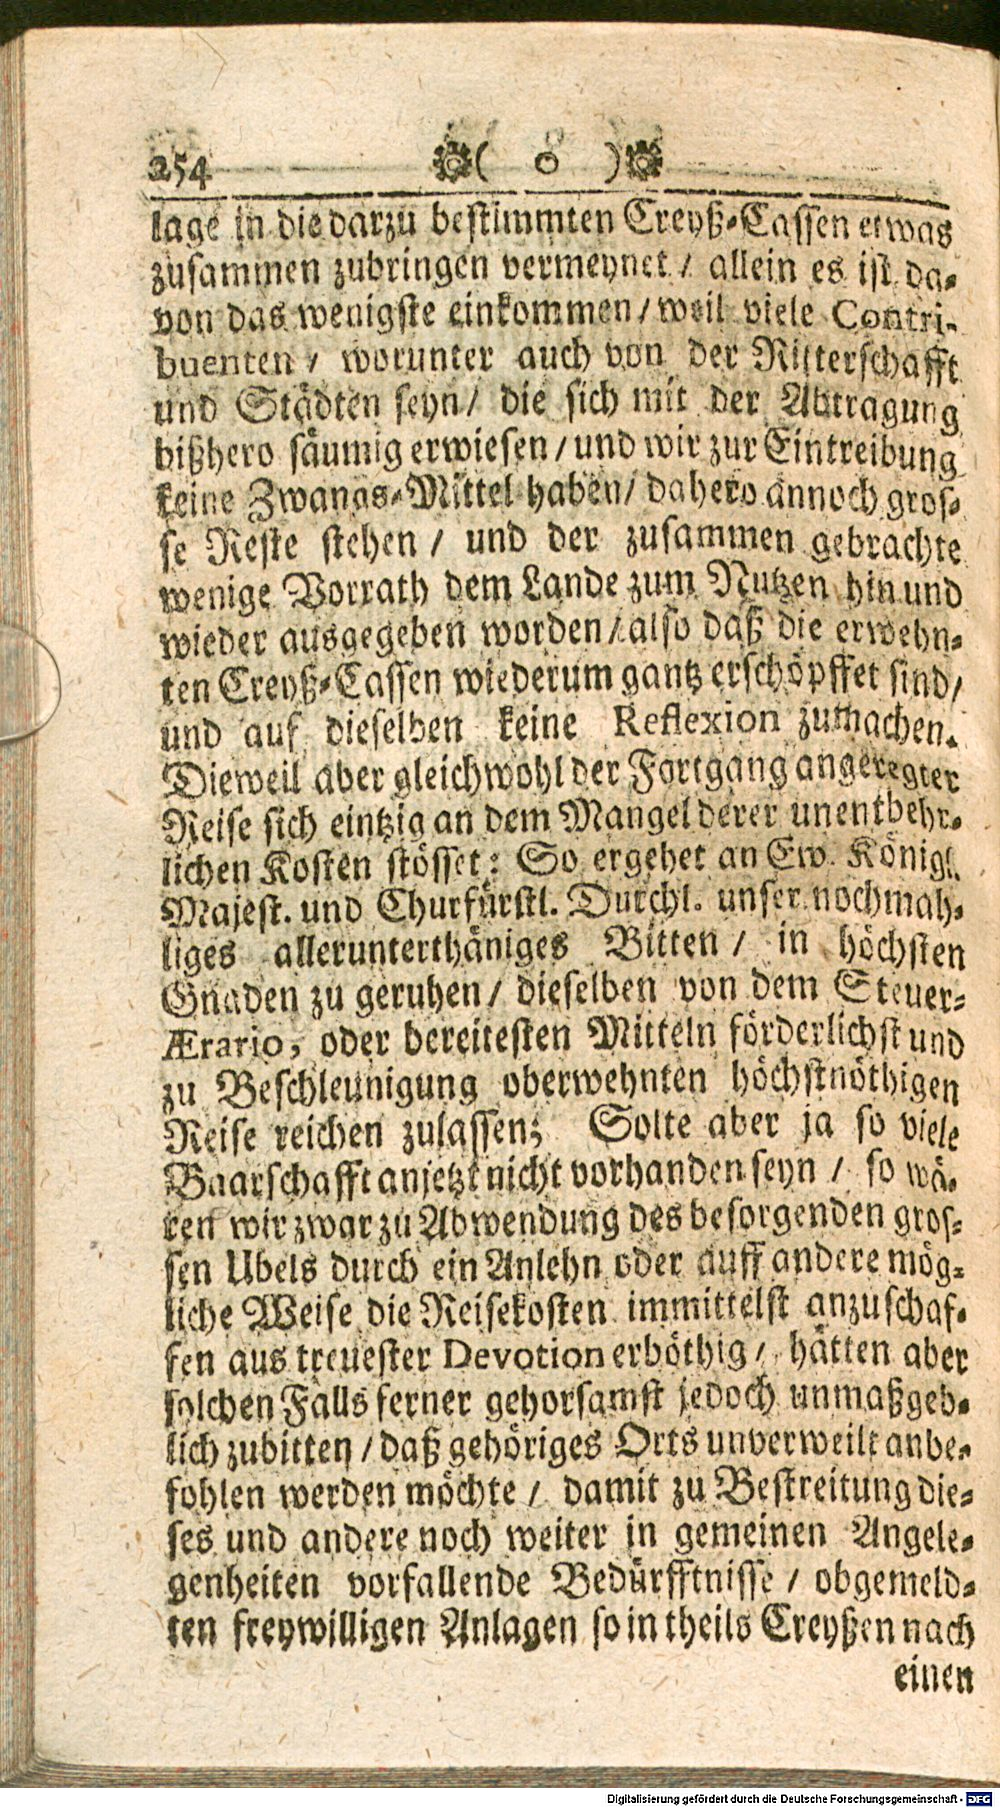 254 ( o )
lage in die darzu bestimmten Creyß-Cassen etwas
zusammen zubringen vermeynet / allein es ist da-
von das wenigste einkommen / weil viele Contri-
buenten / worunter auch von der Ritterschafft
und Städten seyn / die sich mit der Abtragung
bißhero säumig erwiesen / und wir zur Eintreibung
keine Zwangs-Mittel haben / dahero annoch gros-
se Reste stehen / und der zusammen gebrachte
wenige Vorrath dem Lande zum Nutzen hin und
wieder ausgegeben worden / also daß die erwehn-
ten Creyß-Cassen wiederum gantz erschöpffet sind /
und auf dieselben keine Reflexion zumachen.
Dieweil aber gleichwohl der Fortgang angeregter
Reise sich eintzig an dem Mangel derer unentbehr-
lichen Kosten stösset: So ergehet an Ew. Königl.
Majest. und Churfürstl. Durchl. unser nochmah-
liges allerunterthäniges Bitten / in höchsten
Gnaden zu geruhen / dieselben von dem Steuer-
Ærario, oder bereitesten Mitteln förderlichst und
zu Beschleunigung oberwehnten höchstnöthigen
Reise reichen zulassen; Solte aber ja so viele
Baarschafft anjetzt nicht vorhanden seyn / so wä-
ren wir zwar zu Abwendung des besorgenden gros-
sen Ubels durch ein Anlehn oder auff andere mög-
liche Weise die Reisekosten immittelst anzuschaf-
fen aus treuester Devotion erböthig / hätten aber
solchen Falls ferner gehorsamst jedoch unmaßgeb-
lich zubitten / daß gehöriges Orts unverweilt anbe-
fohlen werden möchte / damit zu Bestreitung die-
ses und andere noch weiter in gemeinen Angele-
genheiten vorfallende Bedürfftnisse / obgemeld-
ten freywilligen Anlagen so in theils Creyßen nach
einen
Digitalisierung gefördert durch die Deutsche Forschungsgemeinschaft - DFG